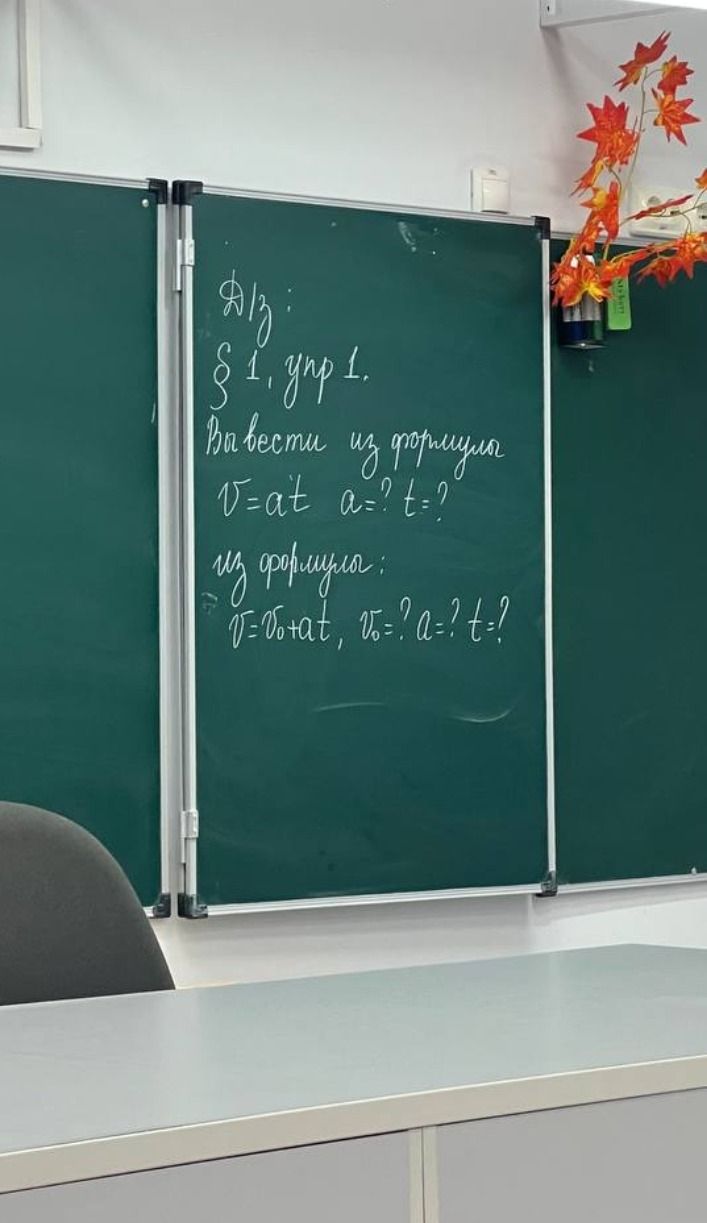 Д/з:
§ 1, упр 1.
Вывести из формулы
v=at a=? t=?
из формулы:
v=v₀+at, v₀=? a=? t=?